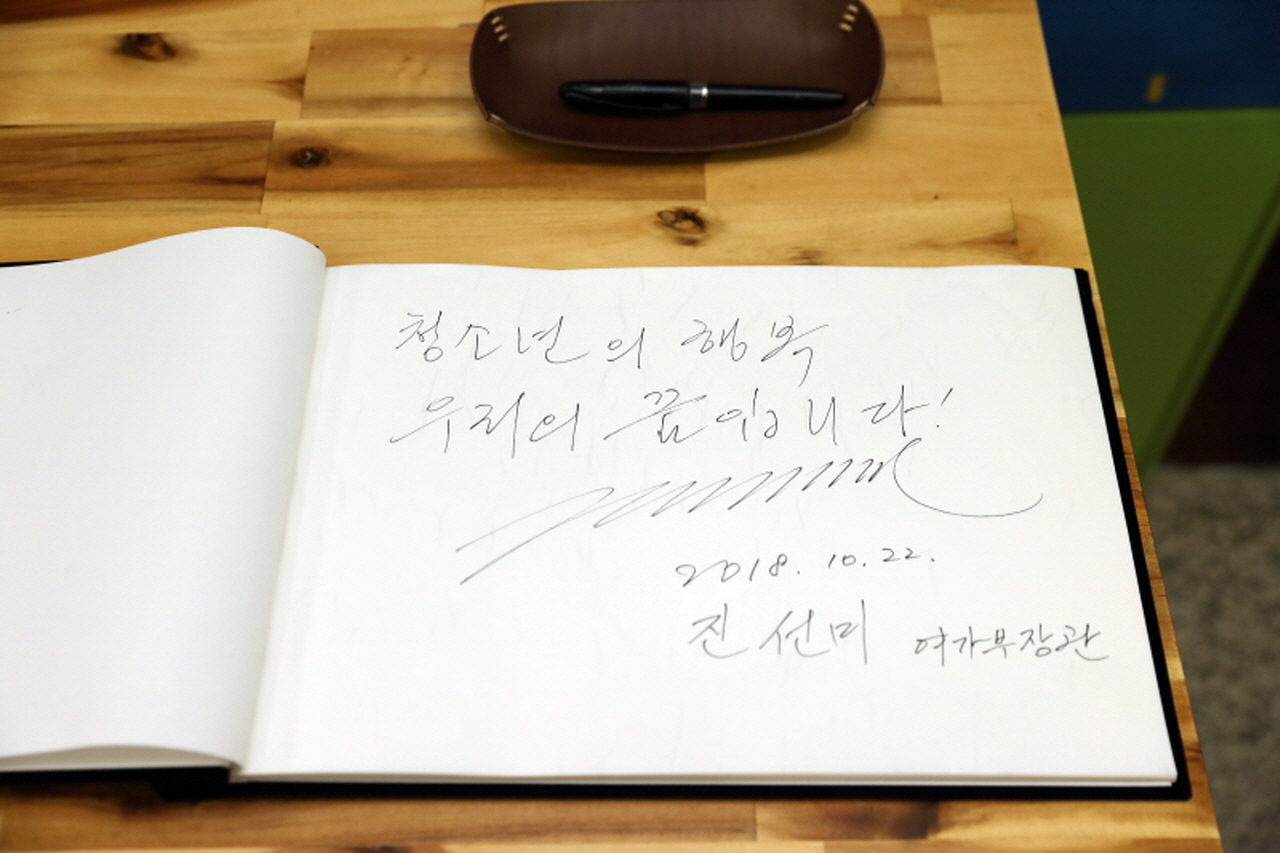 청소년의 행복
우리의 꿈입니다!
2018. 10. 22.
진선미 여가부장관